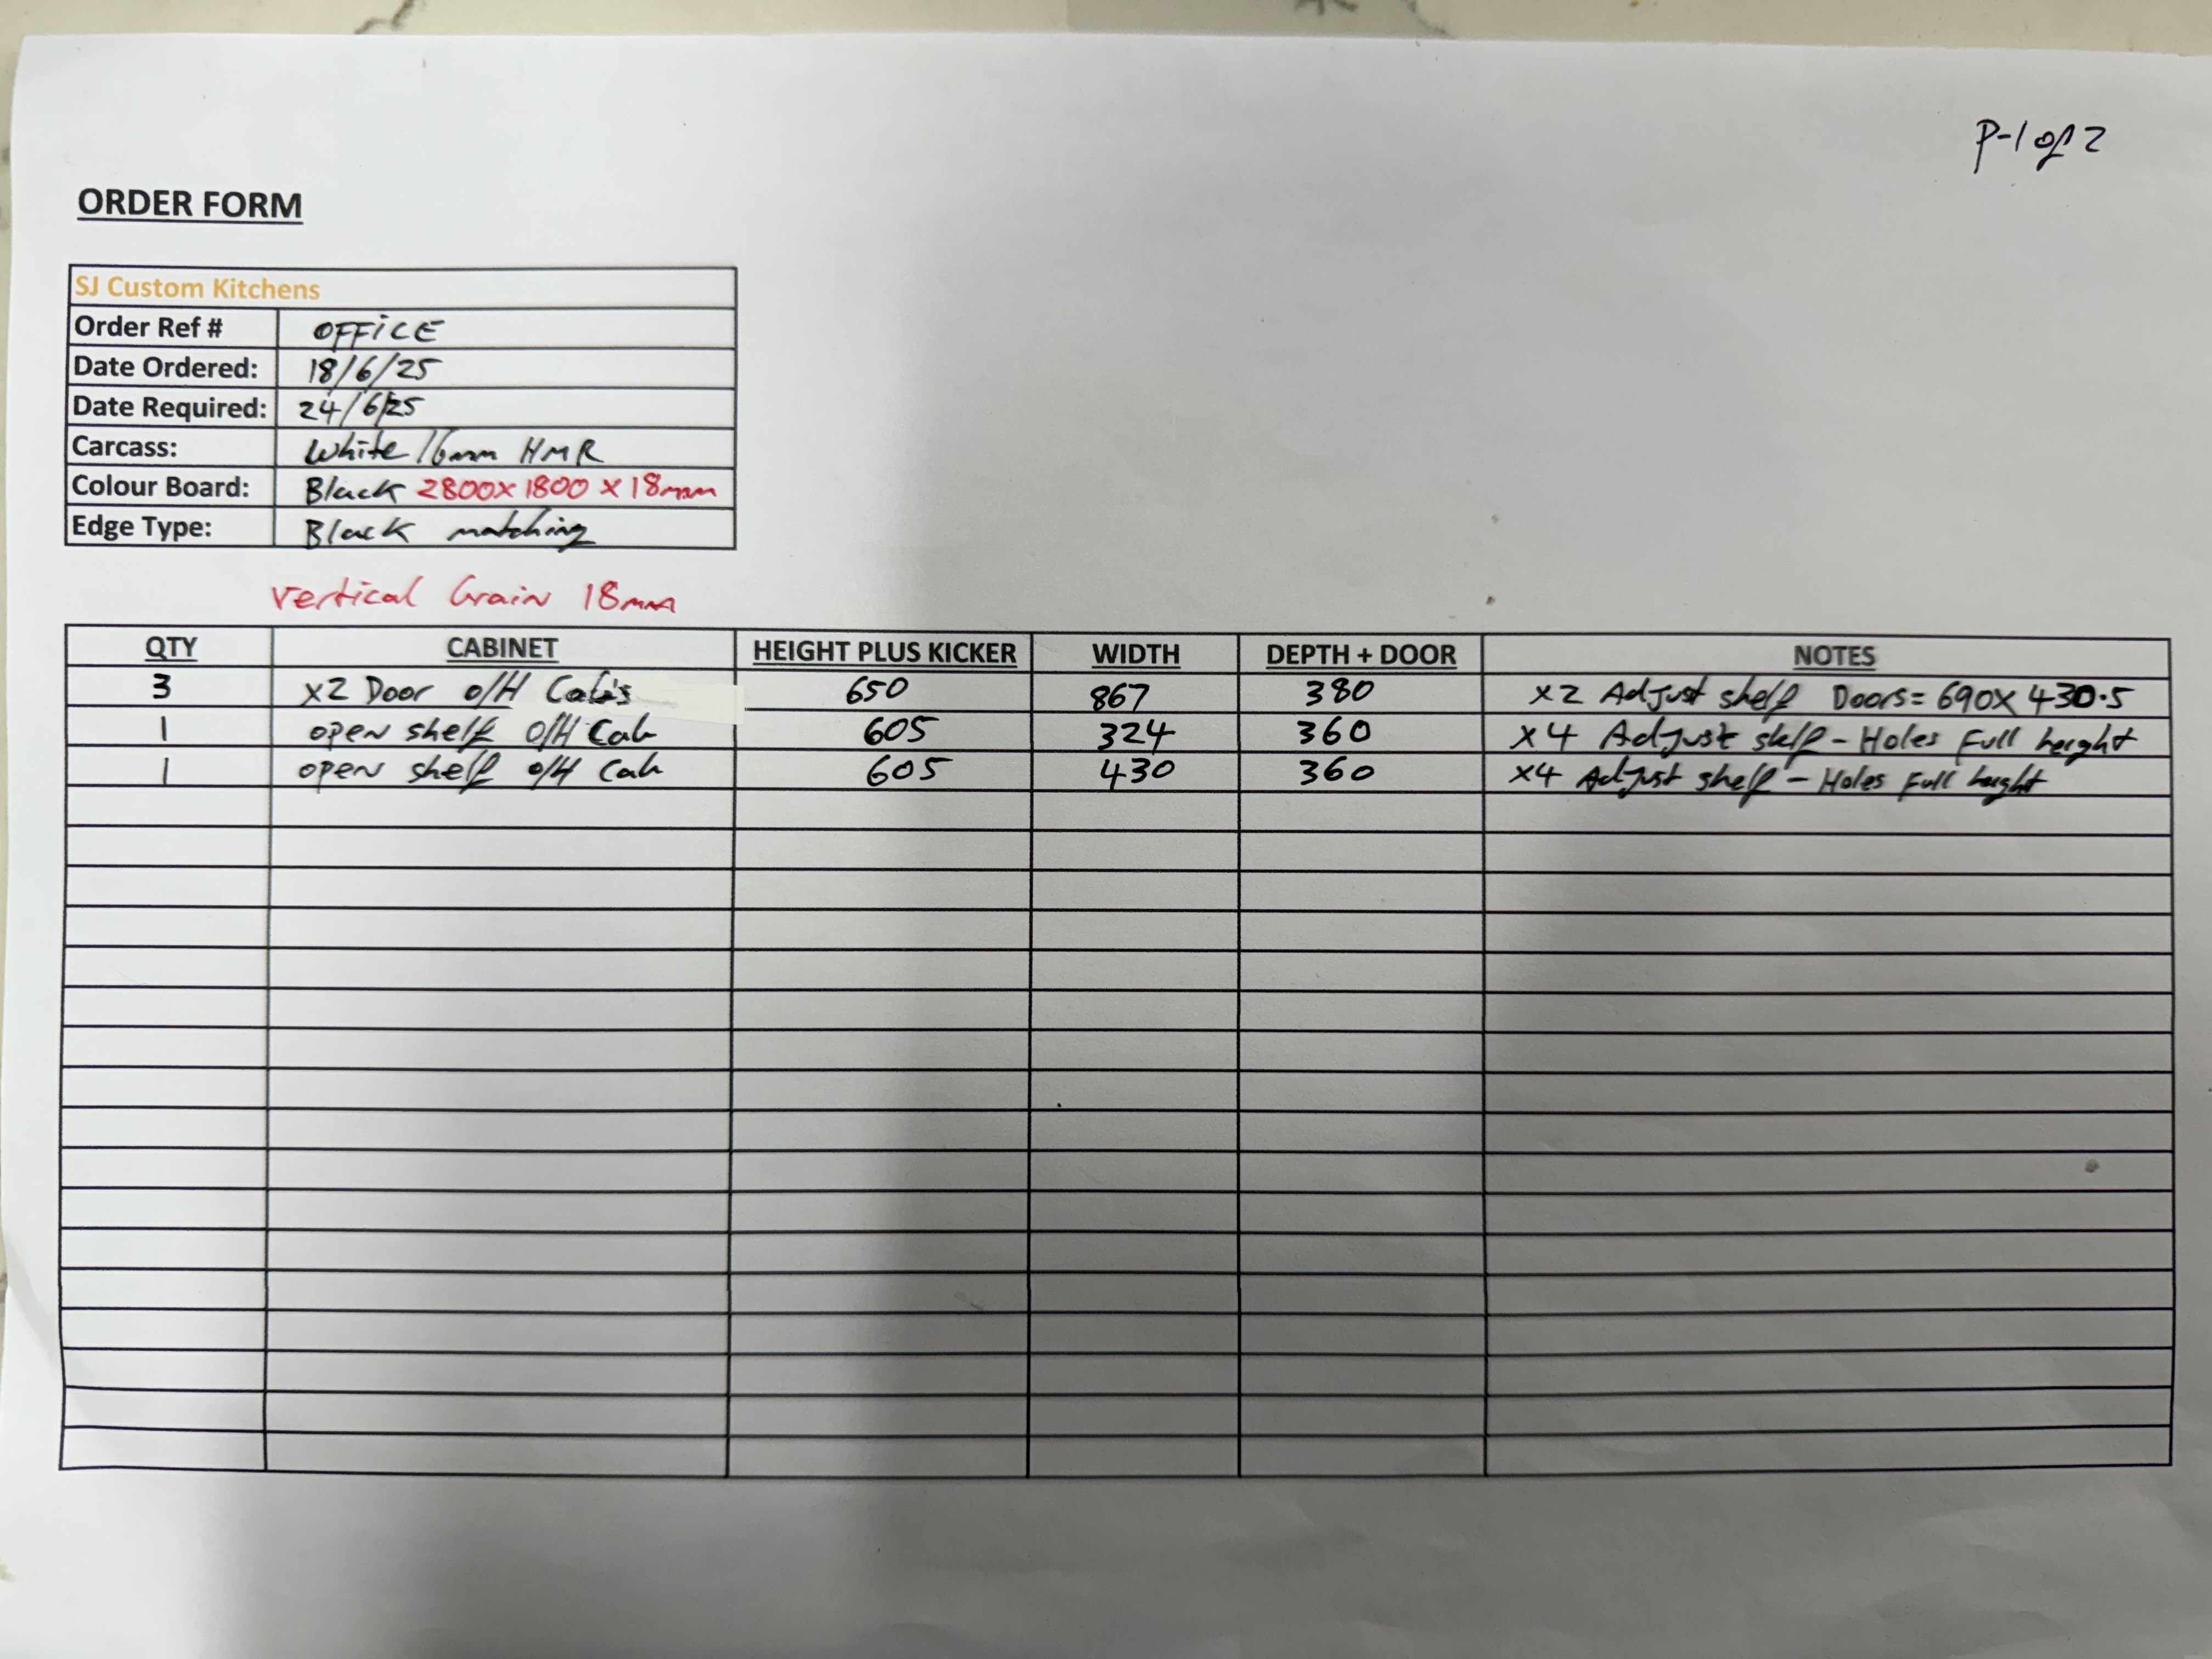 P-1 of 2
ORDER FORM
SJ Custom Kitchens
Order Ref # OFFICE
Date Ordered: 18/6/25
Date Required: 24/6/25
Carcass: White 16mm HMR
Colour Board: Black 2800x1800x18mm
Edge Type: Black matching
Vertical Grain 18mm
QTY CABINET HEIGHT PLUS KICKER WIDTH DEPTH + DOOR NOTES
3 x2 Door O/H Cab's 650 867 380 x2 Adjust shelf Doors= 690x430.5
1 open shelf O/H Cab 605 324 360 x4 Adjust shelf - Holes Full height
1 open shelf O/H Cab 605 430 360 x4 Adjust shelf - Holes Full height